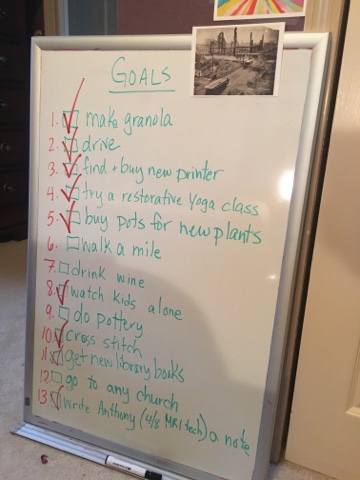 GOALS
1. make granola
2. drive
3. find + buy new printer
4. try a restorative Yoga class
5. buy pots for new plants
6. walk a mile
7. drink wine
8. watch kids alone
9. do pottery
10. cross stitch
11. get new library books
12. go to any church
13. Write Anthony (4/8 MRI tech) a note